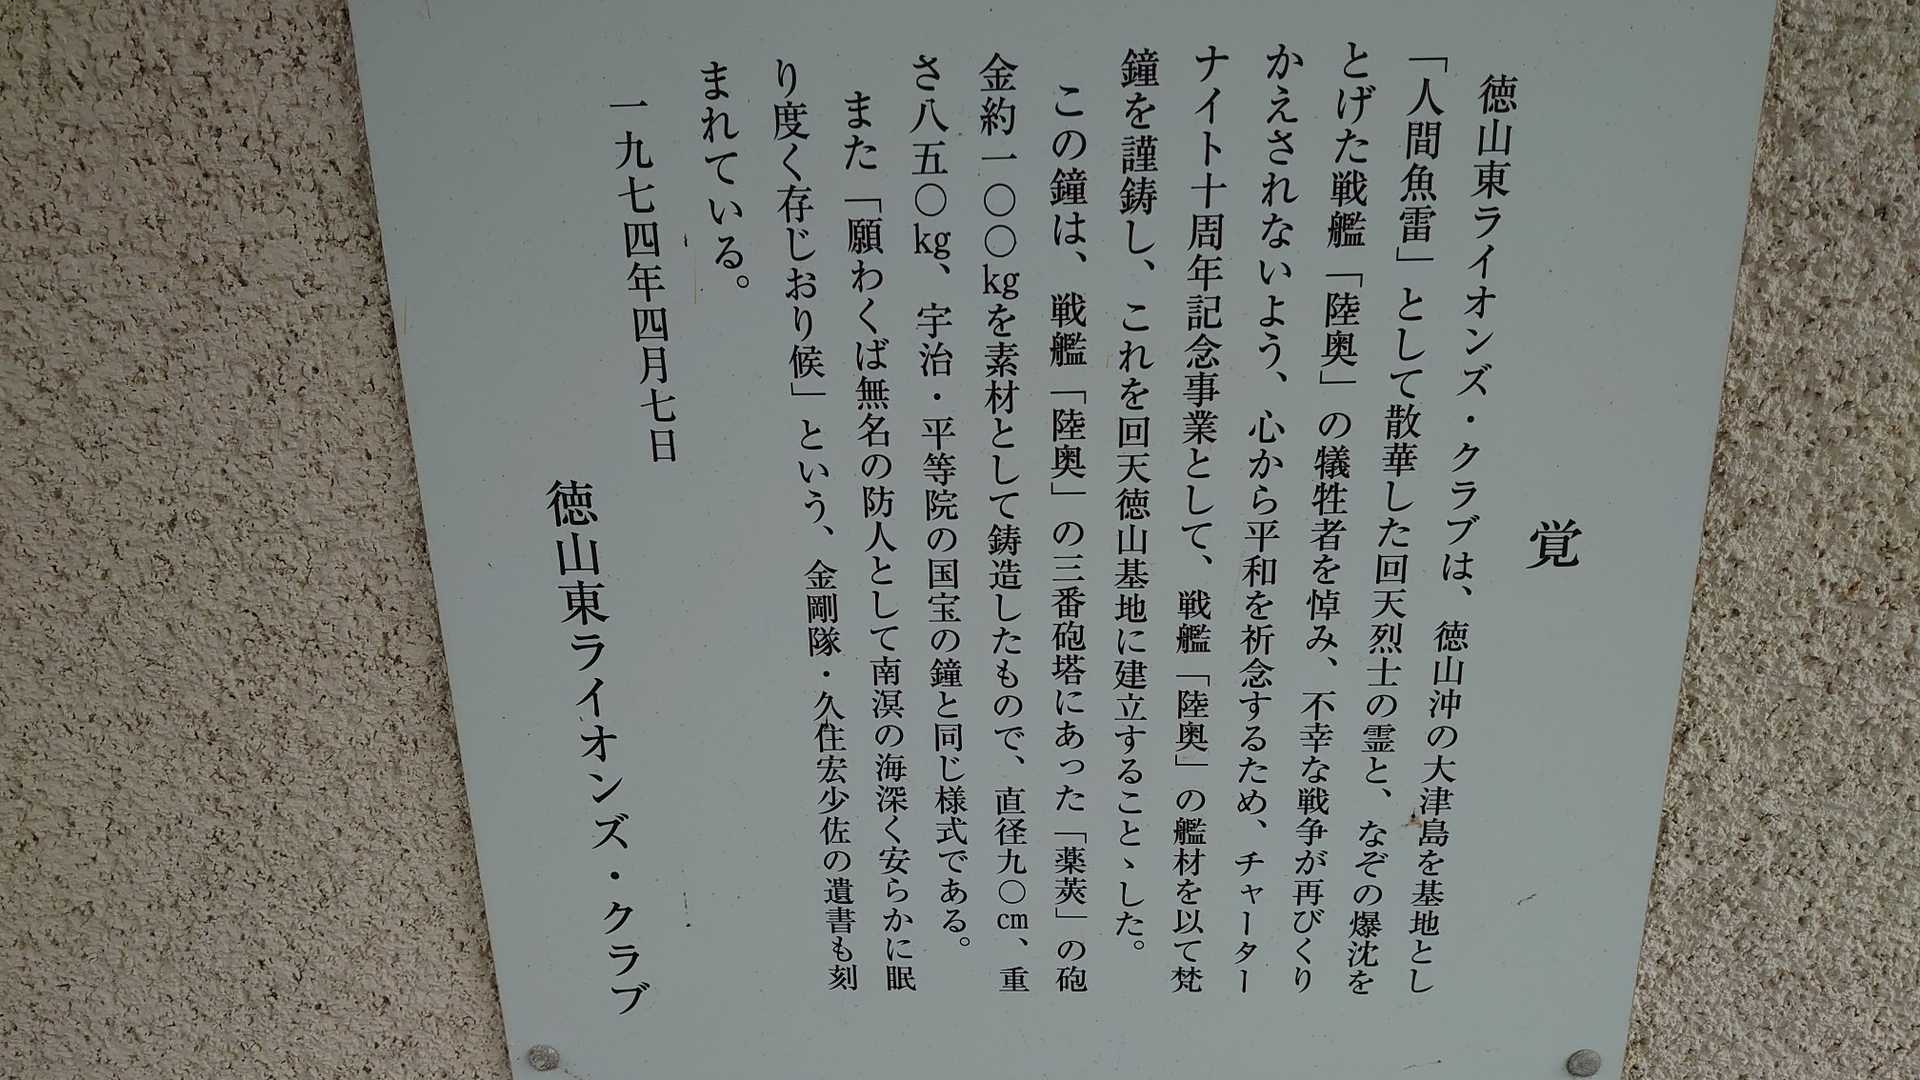 覚
徳山東ライオンズ・クラブは、徳山沖の大津島を基地とし
「人間魚雷」として散華した回天烈士の霊と、なぞの爆沈を
とげた戦艦「陸奥」の犠牲者を悼み、不幸な戦争が再びくり
かえされないよう、心から平和を祈念するため、チャーター
ナイト十周年記念事業として、戦艦「陸奥」の艦材を以て梵
鐘を謹鋳し、これを回天徳山基地に建立することゝした。
この鐘は、戦艦「陸奥」の三番砲塔にあった「薬莢」の砲
金約一〇〇㎏を素材として鋳造したもので、直径九〇㎝、重
さ八五〇㎏、宇治・平等院の国宝の鐘と同じ様式である。
また「願わくば無名の防人として南溟の海深く安らかに眠
り度く存じおり候」という、金剛隊・久住宏少佐の遺書も刻
まれている。
一九七四年四月七日
徳山東ライオンズ・クラブ